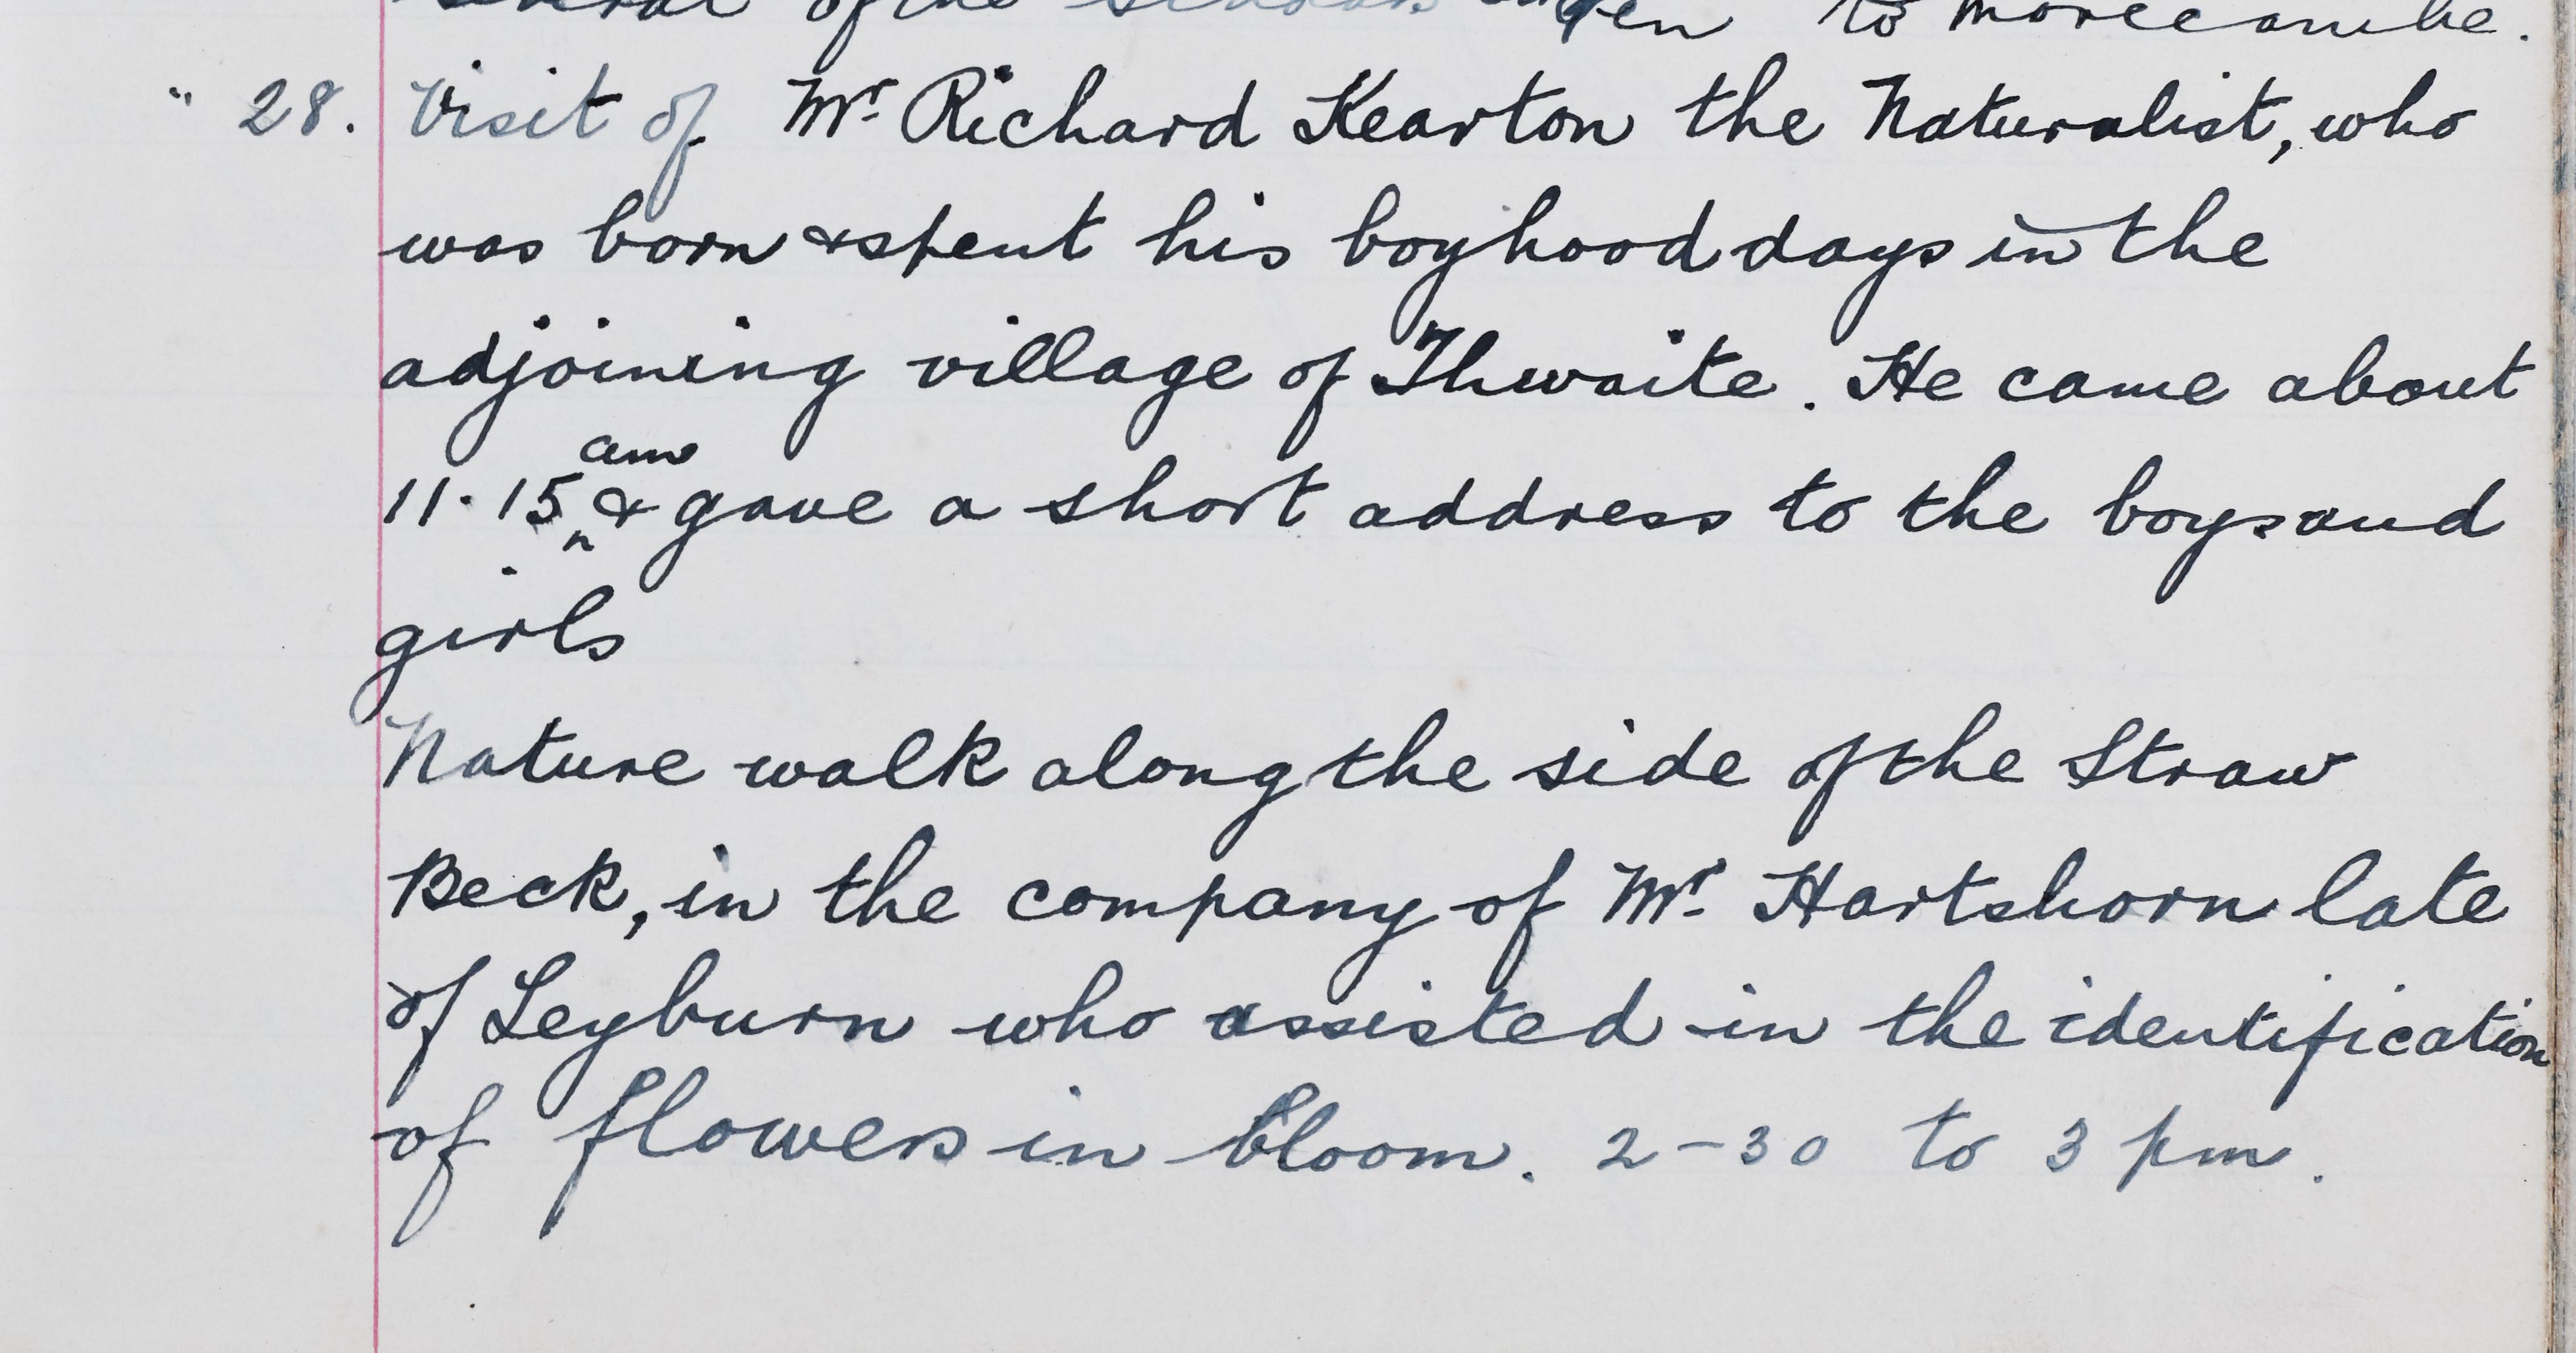 of the to Morecambe.
" 28. Visit of Mr. Richard Kearton the Naturalist, who
was born & spent his boyhood days in the
adjoining village of Thwaite. He came about
am
11.15 & gave a short address to the boys and
girls
Nature walk along the side of the Straw
Beck, in the company of Mr. Hartshorn late
of Leyburn who assisted in the identification
of flowers in bloom. 2-30 to 3 pm.